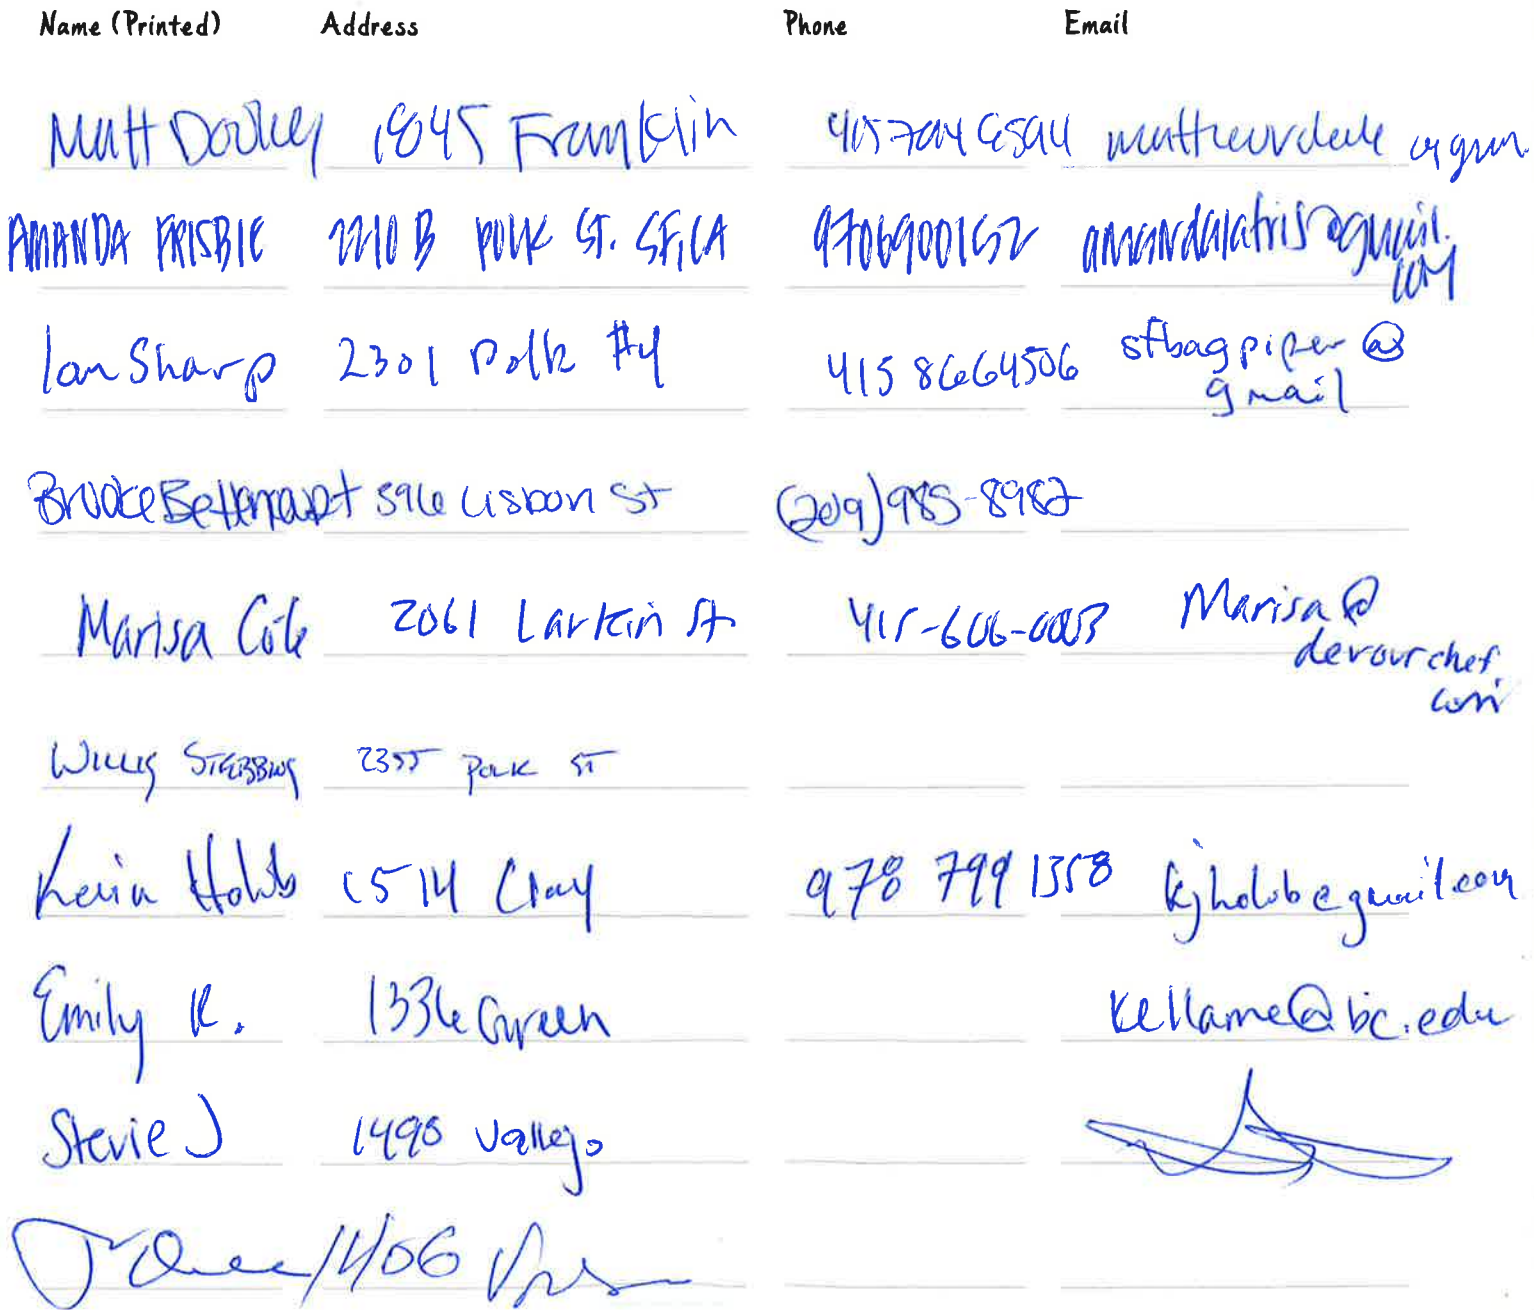 Name (Printed) Address Phone Email
Matt 1845 Franklin
AMANDA FRISBIE 2210 B POLK ST. SF, CA 9706900152 amandalafris@gmail.
com
Ian Sharp 2301 Polk #4 415 8664506 sfbagpiper @
gmail
Brooke 596 Lisbon St (209) 985-8982
Marisa Cole 2061 Larkin St 415-606-0003 Marisa @
devourchef.
com
WILLIS STEBBINS 2355 POLK ST
Kevin Holub 1514 Clay 978 799 1358 kjholub@gmail.com
Emily K. 1336 Green kellame@bc.edu
Stevie J 1498 Vallejo
1406